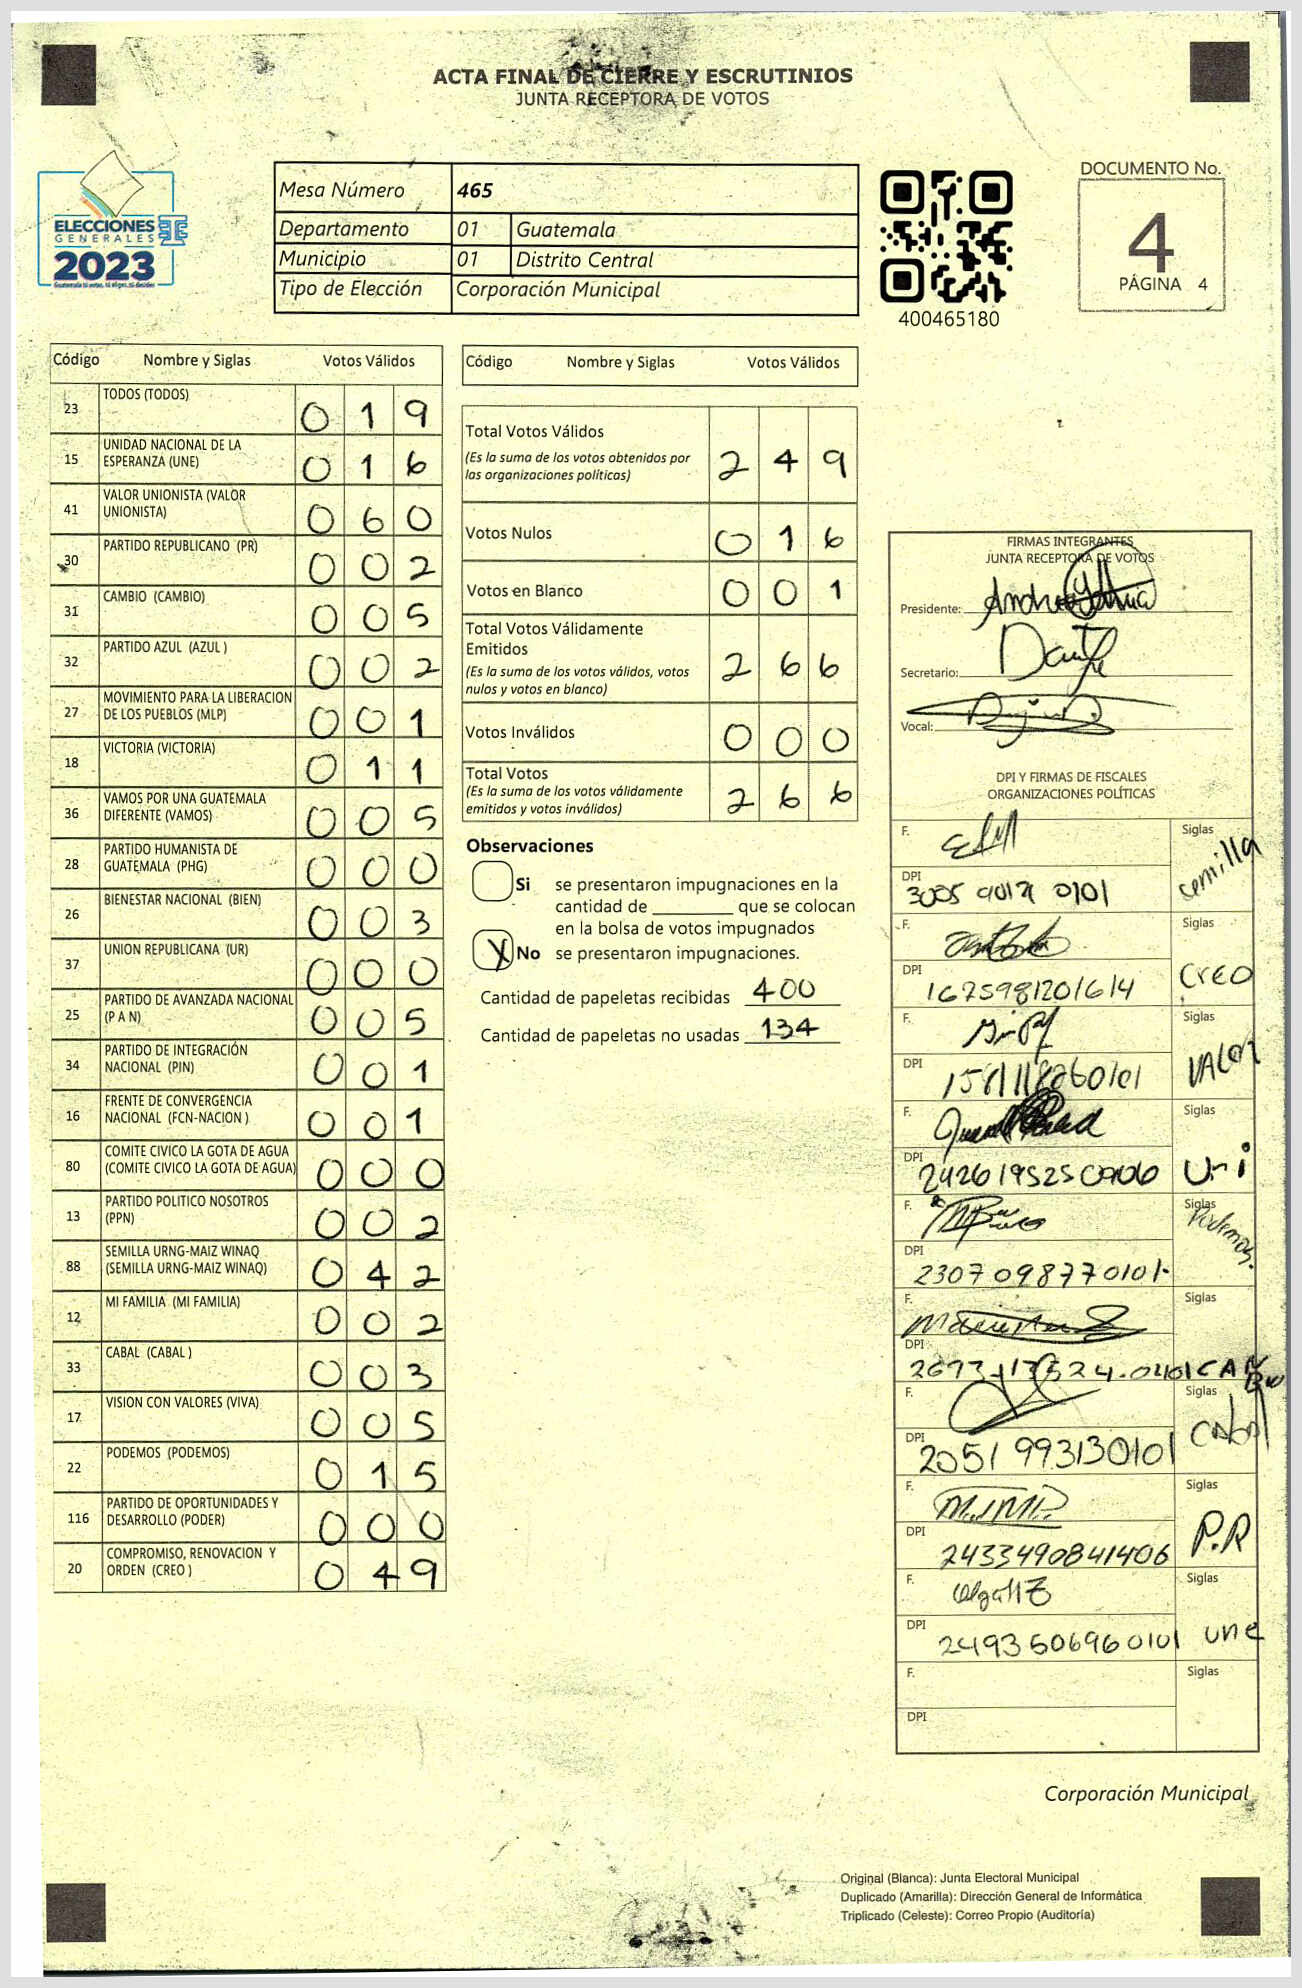 ACTA FINAL DE CIERRE Y ESCRUTINIOS
JUNTA RECEPTORA DE VOTOS
ELECCIONES
GENERALES
2023
Mesa Número 465
Departamento 01 Guatemala
Municipio 01 Distrito Central
Tipo de Elección Corporación Municipal
400465180
DOCUMENTO No.
4
PÁGINA 4
Código Nombre y Siglas Votos Válidos
23 TODOS (TODOS) 0 1 9
15 UNIDAD NACIONAL DE LA
ESPERANZA (UNE) 0 1 6
41 VALOR UNIONISTA (VALOR
UNIONISTA) 0 6 0
30 PARTIDO REPUBLICANO (PR) 0 0 2
31 CAMBIO (CAMBIO) 0 0 5
32 PARTIDO AZUL (AZUL ) 0 0 2
27 MOVIMIENTO PARA LA LIBERACION
DE LOS PUEBLOS (MLP) 0 0 1
18 VICTORIA (VICTORIA) 0 1 1
36 VAMOS POR UNA GUATEMALA
DIFERENTE (VAMOS) 0 0 5
28 PARTIDO HUMANISTA DE
GUATEMALA (PHG) 0 0 0
26 BIENESTAR NACIONAL (BIEN) 0 0 3
37 UNION REPUBLICANA (UR) 0 0 0
25 PARTIDO DE AVANZADA NACIONAL
(P A N) 0 0 5
34 PARTIDO DE INTEGRACIÓN
NACIONAL (PIN) 0 0 1
16 FRENTE DE CONVERGENCIA
NACIONAL (FCN-NACION ) 0 0 1
80 COMITE CIVICO LA GOTA DE AGUA
(COMITE CIVICO LA GOTA DE AGUA) 0 0 0
13 PARTIDO POLITICO NOSOTROS
(PPN) 0 0 2
88 SEMILLA URNG-MAIZ WINAQ
(SEMILLA URNG-MAIZ WINAQ) 0 4 2
12 MI FAMILIA (MI FAMILIA) 0 0 2
33 CABAL (CABAL ) 0 0 3
17 VISION CON VALORES (VIVA) 0 0 5
22 PODEMOS (PODEMOS) 0 1 5
116 PARTIDO DE OPORTUNIDADES Y
DESARROLLO (PODER) 0 0 0
20 COMPROMISO, RENOVACION Y
ORDEN (CREO ) 0 4 9
Código Nombre y Siglas Votos Válidos
Total Votos Válidos
(Es la suma de los votos obtenidos por
las organizaciones políticas) 2 4 9
Votos Nulos 0 1 6
Votos en Blanco 0 0 1
Total Votos Válidamente
Emitidos
(Es la suma de los votos válidos, votos
nulos y votos en blanco) 2 6 6
Votos Inválidos 0 0 0
Total Votos
(Es la suma de los votos válidamente
emitidos y votos inválidos) 2 6 6
Observaciones
Si se presentaron impugnaciones en la
cantidad de ________ que se colocan
en la bolsa de votos impugnados
X No se presentaron impugnaciones.
Cantidad de papeletas recibidas 400
Cantidad de papeletas no usadas 134
FIRMAS INTEGRANTES
JUNTA RECEPTORA DE VOTOS
Presidente:
Secretario:
Vocal:
DPI Y FIRMAS DE FISCALES
ORGANIZACIONES POLÍTICAS
F. Siglas
semilla
DPI
F. Siglas
DPI Creo
1675981201614
F. Siglas
DPI Valor
F. Siglas
DPI Uni
2426195250906
F. Siglas
Podemos.
DPI
2307098770101-
F. Siglas
DPI
CAMBIO
F. Siglas
Cabal
DPI
2051993130101
F. Siglas
P.R
DPI
2433490841406
F. Siglas
DPI
2493506960101 une
F. Siglas
DPI
Corporación Municipal
Original (Blanca): Junta Electoral Municipal
Duplicado (Amarilla): Dirección General de Informática
Triplicado (Celeste): Correo Propio (Auditoría)